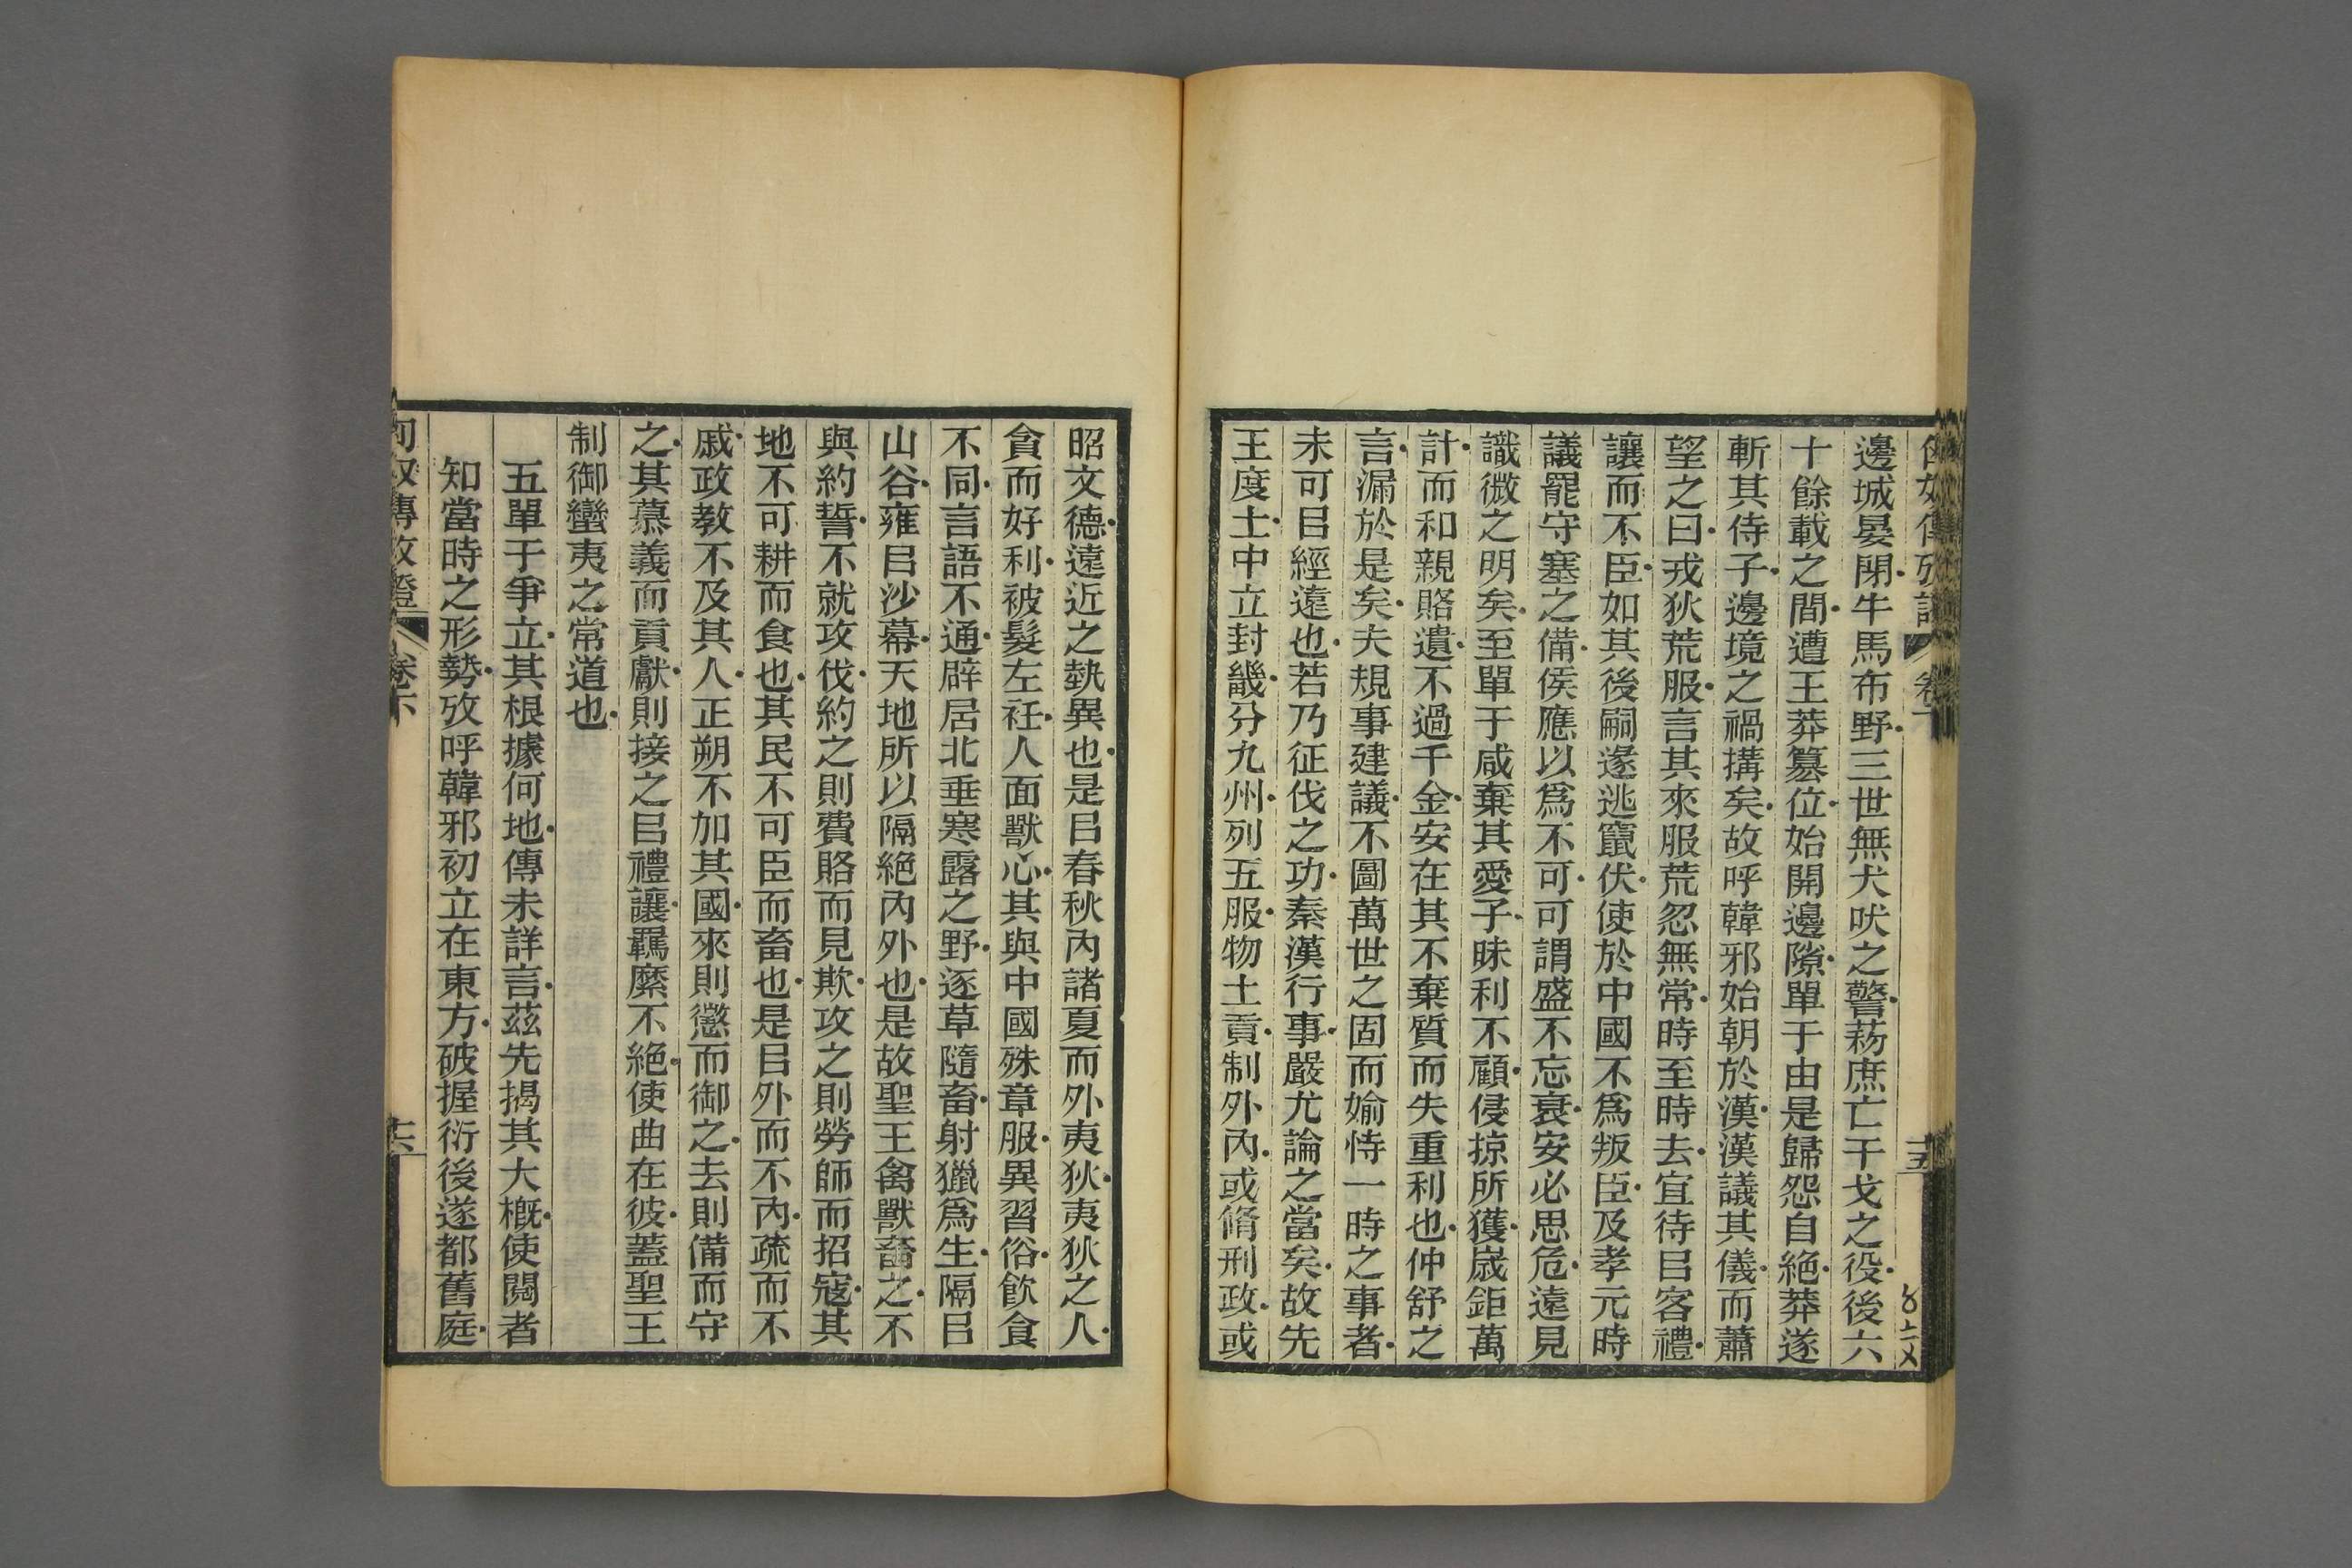 邊城晏閉牛馬布野三世無犬吠之警䔥庶亡干戈之役後六
十餘載之間遭王莽篡位始開邊隙單于由是歸怨自絕莽遂
斬其侍子邊境之禍搆矣故呼韓邪始朝於漢漢議其儀而蕭
望之曰戎狄荒服言其來服荒忽無常時至時去宜待㠯客禮
讓而不臣如其後嗣遂逃竄伏使於中國不爲叛臣及孝元時
議罷守塞之備侯應以爲不可可謂盛不忘衰安必思危遠見
識微之明矣至單于咸棄其愛子昧利不顧侵掠所獲嵗鉅萬
計而和親賂遺不過千金安在其不棄質而失重利也仲舒之
言漏於是矣夫規事建議不圖萬世之固而媮恃一時之事者
未可㠯經遠也若乃征伐之功秦漢行事嚴尤論之當矣故先
王度土中立封畿分九州列五服物土貢制外內或脩刑政或
昭文德遠近之埶異也是㠯春秋內諸夏而外夷狄夷狄之人
貪而好利被髮左衽人面獸心其與中國殊章服異習俗飮食
不同言語不通辟居北垂寒露之野逐草隨畜射獵爲生隔㠯
山谷雍㠯沙幕天地所以隔絕內外也是故聖王禽獸畜之不
與約誓不就攻伐約之則費賂而見欺攻之則勞師而招寇其
地不可耕而食也其民不可臣而畜也是㠯外而不內疏而不
戚政教不及其人正朔不加其國來則懲而御之去則備而守
之其慕義而貢獻則接之㠯禮讓羈縻不絕使曲在彼蓋聖王
制御蠻夷之常道也
五單于爭立其根據何地傳未詳言茲先揭其大槪使閱者
知當時之形勢攷呼韓邪初立在東方破握衍後遂都舊庭
匈奴傳攷證 卷下 十六